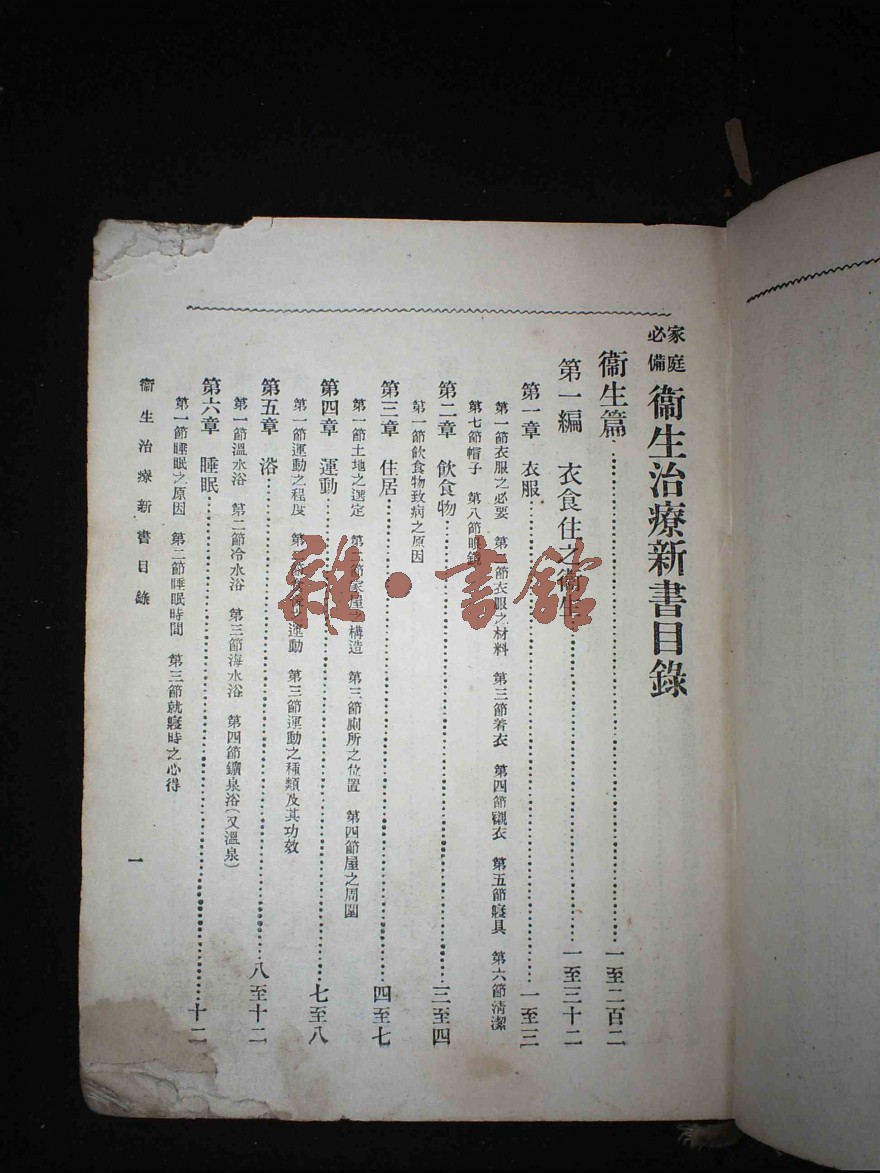 家庭必備 衞生治療新書目錄
衞生篇……一至二百二
第一編 衣食住之衞生……一至三十二
第一章 衣服……一至三
第一節衣服之必要 第二節衣服之材料 第三節着衣 第四節襯衣 第五節寢具 第六節淸潔
第七節帽子 第八節眼鏡
第二章 飲食物……三至四
第一節飲食物致病之原因
第三章 住居……四至七
第一節土地之選定 第二節家屋之構造 第三節廁所之位置 第四節屋之周圍
第四章 運動……七至八
第一節運動之程度 運動 第三節運動之種類及其功效
第五章 浴……八至十二
第一節溫水浴 第二節冷水浴 第三節海水浴 第四節鑛泉浴(又溫泉)
第六章 睡眠……十二
第一節睡眠之原因 第二節睡眠時間 第三節就寢時之心得
衞生治療新書目錄
一
雜·書館